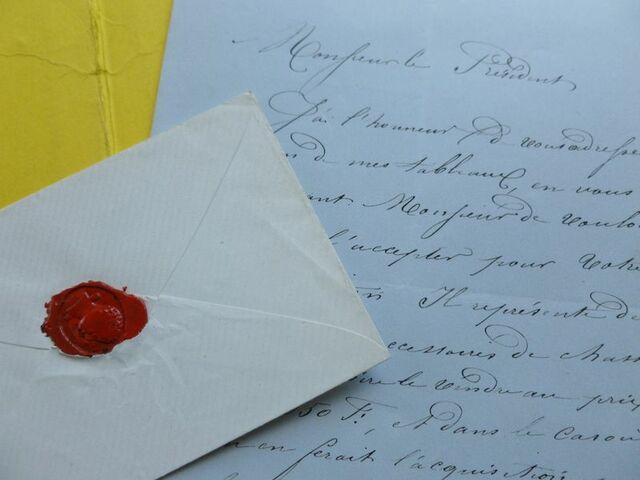 Monsieur le Président
J'ai l'honneur d vous adresse
s de mes tableaux, en vous
ant Monsieur de vouloi
l'accepter pour votre
Il représente de
ccessoires de chass
re le vendre au prix
50 F., et dans le cas où
en ferait l'acquisition